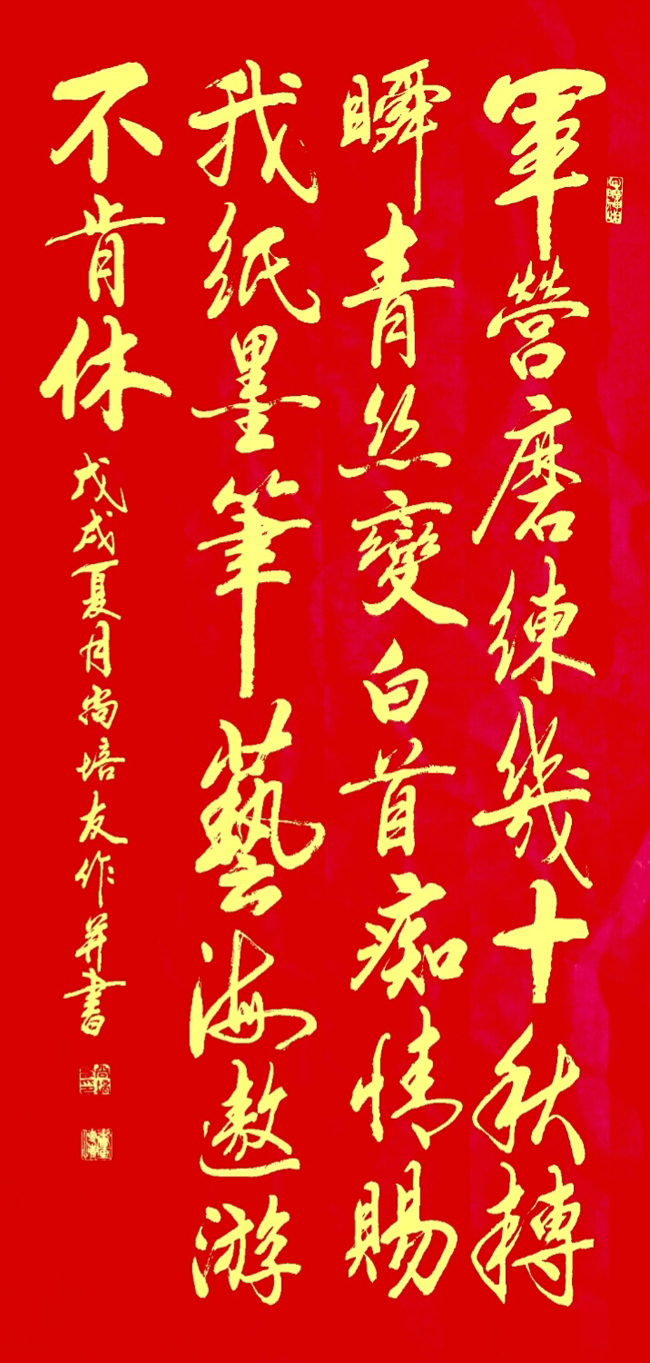 軍營磨練幾十秋轉
瞬青丝變白首痴情賜
我纸墨筆藝海遨游
不肯休
戊戌夏月尚培友作并書